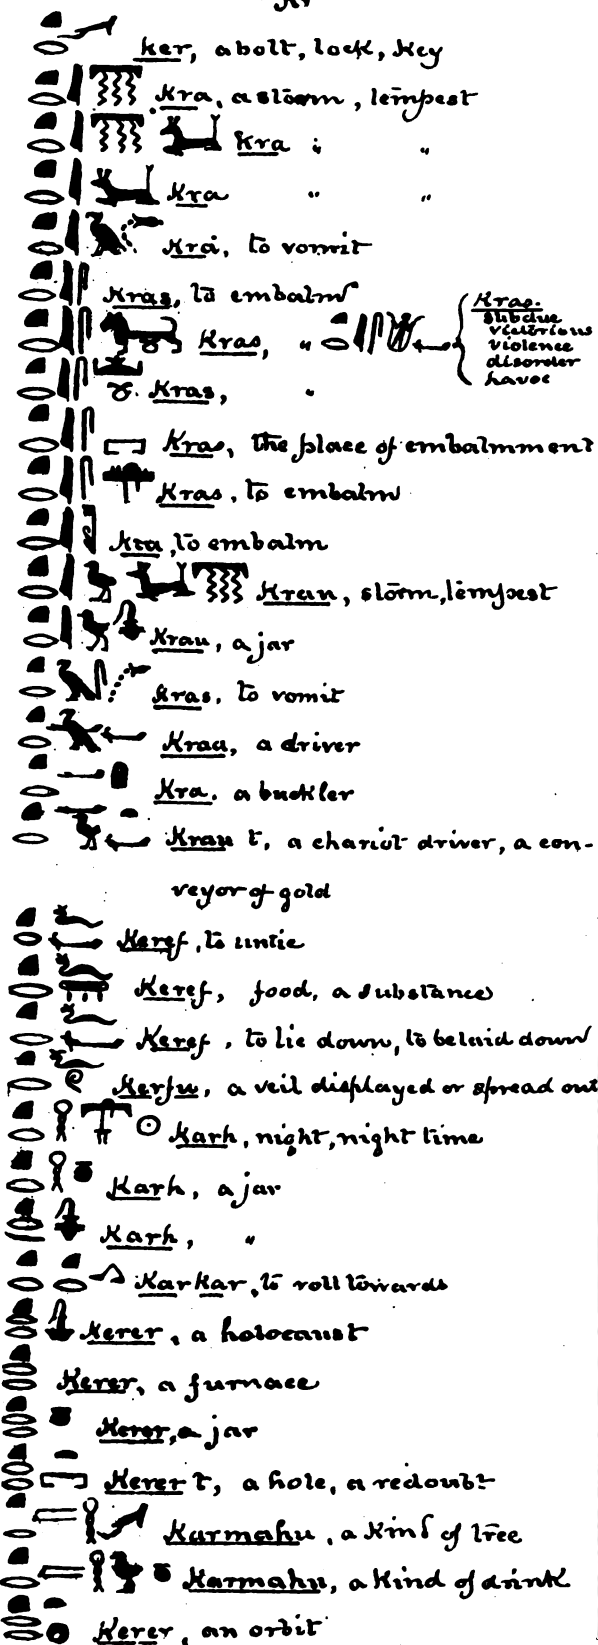 Ker, a bolt, lock, key
Kra, a storm, tempest
Kra " "
Kra " "
Kra, to vomit
Kras, to embalm
Kras, " Kras.
subdue
victorious
violence
disorder
havoc
Kras, "
Kras, the place of embalmment
Kras, to embalm
Kra, to embalm
Krau, storm, tempest
Krau, a jar
Kras, to vomit
Kraa, a driver
Kra. a buckler
Krau t, a chariot driver, a con-
veyor of gold
Keref, to untie
Keref, food, a substance
Keref, to lie down, to be laid down
Kerfu, a veil displayed or spread out
Karh, night, night time
Karh, a jar
Karh, "
Kar Kar, to roll towards
Kerer, a holocaust
Kerer, a furnace
Kerer, a jar
Kerer t, a hole, a redoubt
Karmahu, a Kind of tree
Karmahu, a Kind of drink
Kerer, an orbit